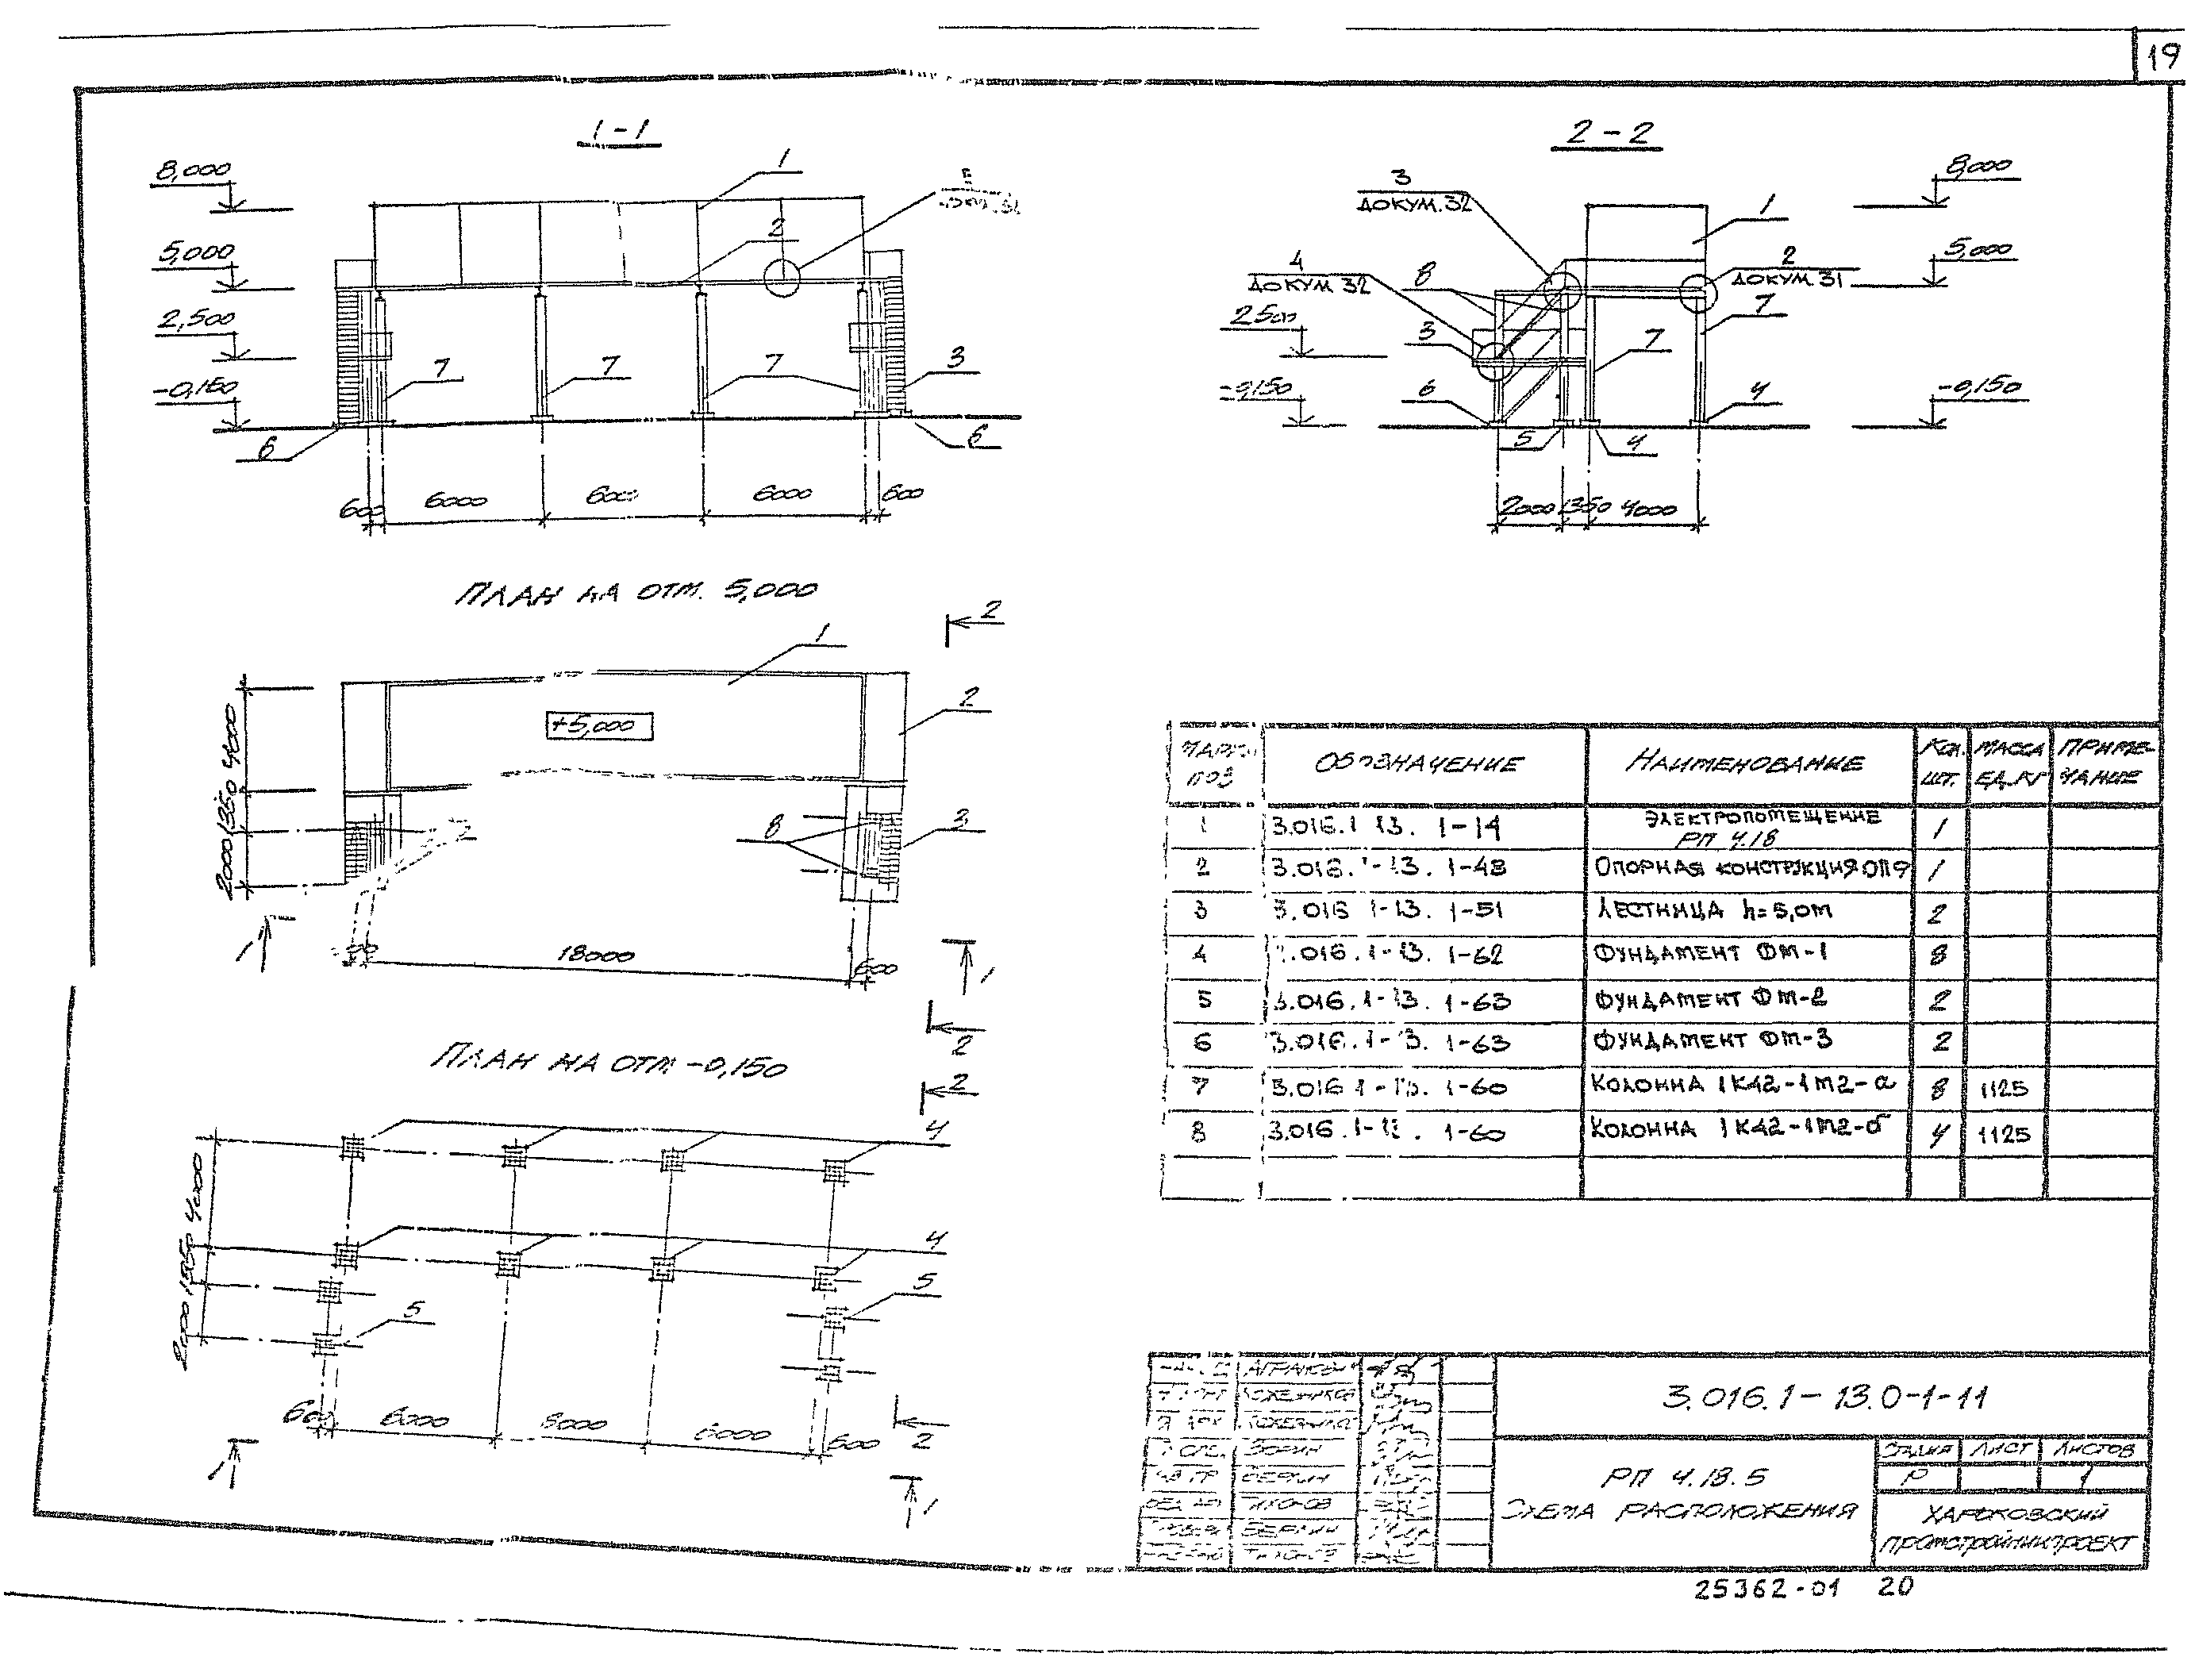 19
1-1
8,000
5,000
2,500
-0,150
1
2
7
7
7
3
6
6
600
6000
6000
6000
600
2-2
3
ДОКУМ.32
4
ДОКУМ.32
8
2500
3
-0,150
6
5
4
7
7
4
1
2
ДОКУМ.31
8,000
5,000
-0,150
2000
1350
4000
ПЛАН НА ОТМ. 5,000
2
1
2
+5,000
8
3
4000
1350
2000
1
18000
600
1
2
ПЛАН НА ОТМ -0,150
2
4
4
5
5
4000
1350
2000
600
6000
6000
6000
600
2
1
1
МАРКА ПОЗ ОБОЗНАЧЕНИЕ НАИМЕНОВАНИЕ КОЛ. ШТ. МАССА ЕД.,КГ ПРИМЕ-ЧАНИЕ
1 3.016.1-13. 1-14 ЭЛЕКТРОПОМЕЩЕНИЕ РП 4.18 1
2 3.016.1-13. 1-48 ОПОРНАЯ КОНСТРУКЦИЯ ОП9 1
3 3.016 1-13. 1-51 ЛЕСТНИЦА h=5,0м 2
4 3.016.1-13. 1-62 ФУНДАМЕНТ ФМ-1 8
5 3.016.1-13. 1-63 ФУНДАМЕНТ ФМ-2 2
6 3.016.1-13. 1-63 ФУНДАМЕНТ ФМ-3 2
7 3.016 1-13. 1-60 КОЛОННА 1К42-1М2-а 8 1125
8 3.016.1-13. 1-60 КОЛОННА 1К42-1М2-б 4 1125
3.016.1-13.0-1-11
РП 4.18.5
СХЕМА РАСПОЛОЖЕНИЯ
СТАДИЯ ЛИСТ ЛИСТОВ
Р 1
ХАРЬКОВСКИЙ
ПРОМСТРОЙНИИПРОЕКТ
25362-01 20